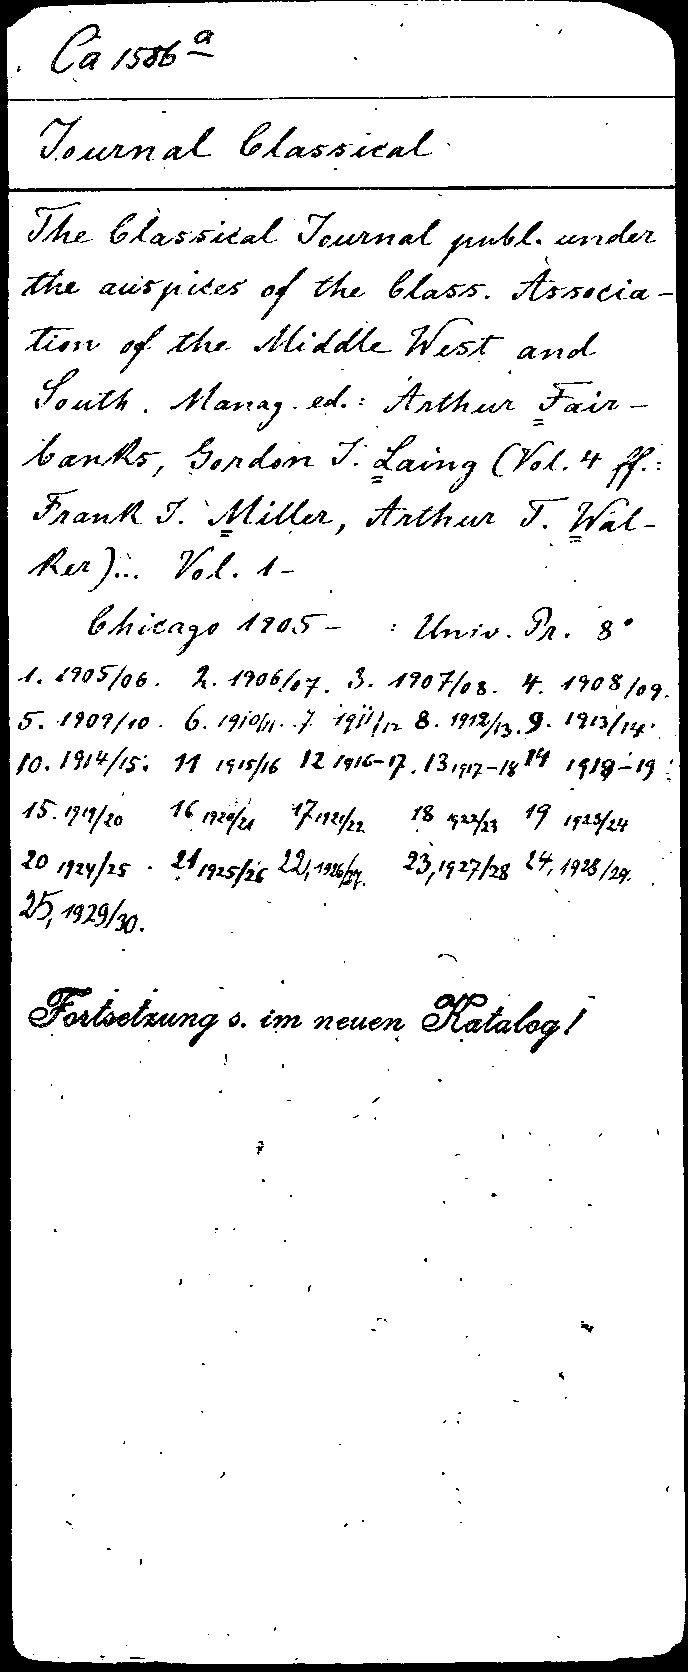 Ca 1586 a
Journal Classical
The Classical Journal publ. under
the auspices of the Class. Associa-
tion of the Middle West and
South. Manag. ed.: Arthur Fair-
banks, Gordon J. Laing (Vol. 4 ff.:
Frank J. Miller, Arthur T. Wal-
ker)... Vol. 1-
Chicago 1905- : Univ. Pr. 8°
1. 1905/06. 2. 1906/07. 3. 1907/08. 4. 1908/09.
5. 1909/10. 6. 1910/11. 7. 1911/12 8. 1912/13. 9. 1913/14.
10. 1914/15. 11 1915/16 12 1916-17. 13 1917-18 14 1918-19
15. 1919/20 16 1920/21 17 1921/22 18 1922/23 19 1923/24
20 1924/25 . 21 1925/26 22, 1926/27. 23, 1927/28 24, 1928/29.
25, 1929/30.
Fortsetzung s. im neuen Katalog!